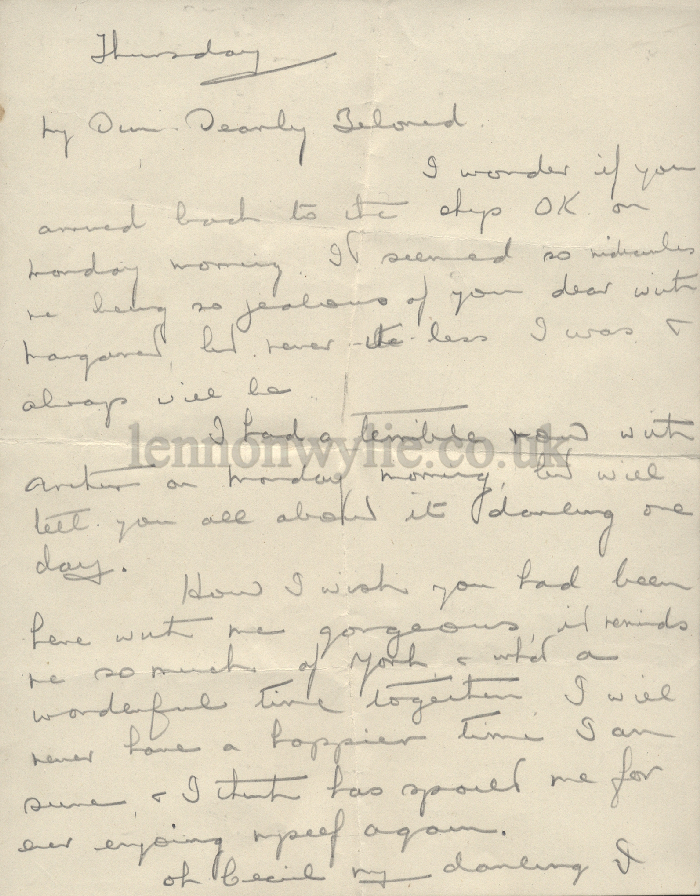 Thursday
My Own Dearly Beloved.
I wonder if you
arrived back to the ship OK on
Monday morning. It seemed so ridicules
me being so jealous of you dear with
Margaret, but never the less I was &
always will be
I had a terrible row with
lennonwylie.co.uk
Arthur on Monday morning, but will
tell you all about it darling one
day.
How I wish you had been
here with me gorgeous, it reminds
me so much of York & what a
wonderful time together I will
never have a happier time I am
sure, & I think has spoiled me for
ever enjoing myself again.
oh Cecil my darling I